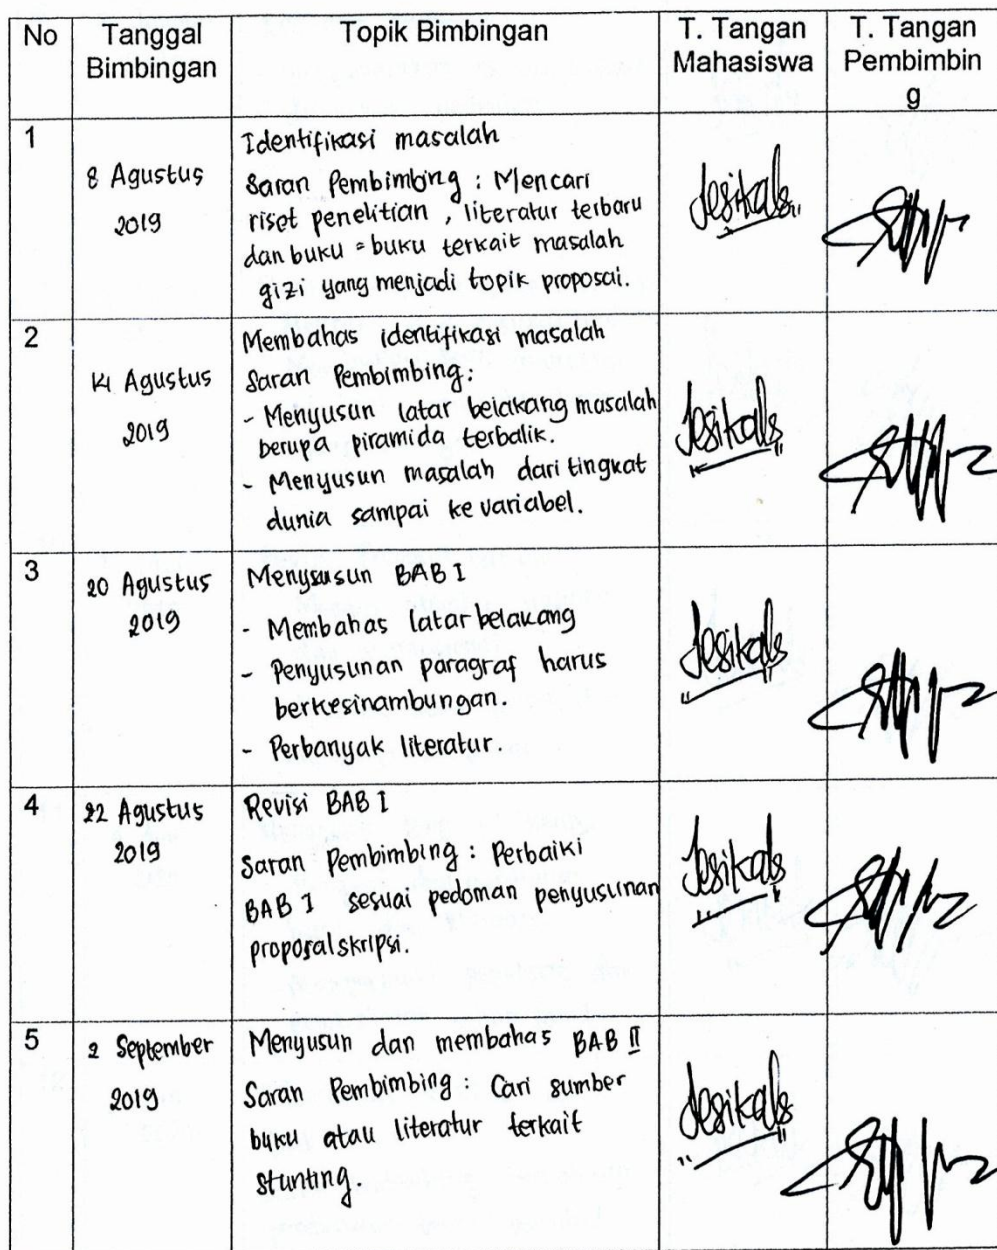 No
Tanggal
Bimbingan
Topik Bimbingan
T. Tangan
Mahasiswa
T. Tangan
Pembimbin
g
1
8 Agustus
2019
Identifikasi masalah
Saran Pembimbing : Mencari
riset penelitian , literatur terbaru
dan buku = buku terkait masalah
gizi yang menjadi topik proposal.
Jesikals
2
14 Agustus
2019
Membahas identifikasi masalah
Saran Pembimbing :
- Menyusun latar belakang masalah
berupa piramida terbalik.
- Menyusun masalah dari tingkat
dunia sampai ke variabel.
Jesikals
3
20 Agustus
2019
Menysusun BAB I
- Membahas latar belakang
- Penyusunan paragraf harus
berkesinambungan.
- Perbanyak literatur.
Jesikals
4
22 Agustus
2019
Revisi BAB I
Saran Pembimbing : Perbaiki
BAB I sesuai pedoman penyusunan
proposal skripsi.
Jesikals
5
2 September
2019
Menyusun dan membahas BAB II
Saran Pembimbing : Cari sumber
buku atau literatur terkait
stunting.
Jesikals